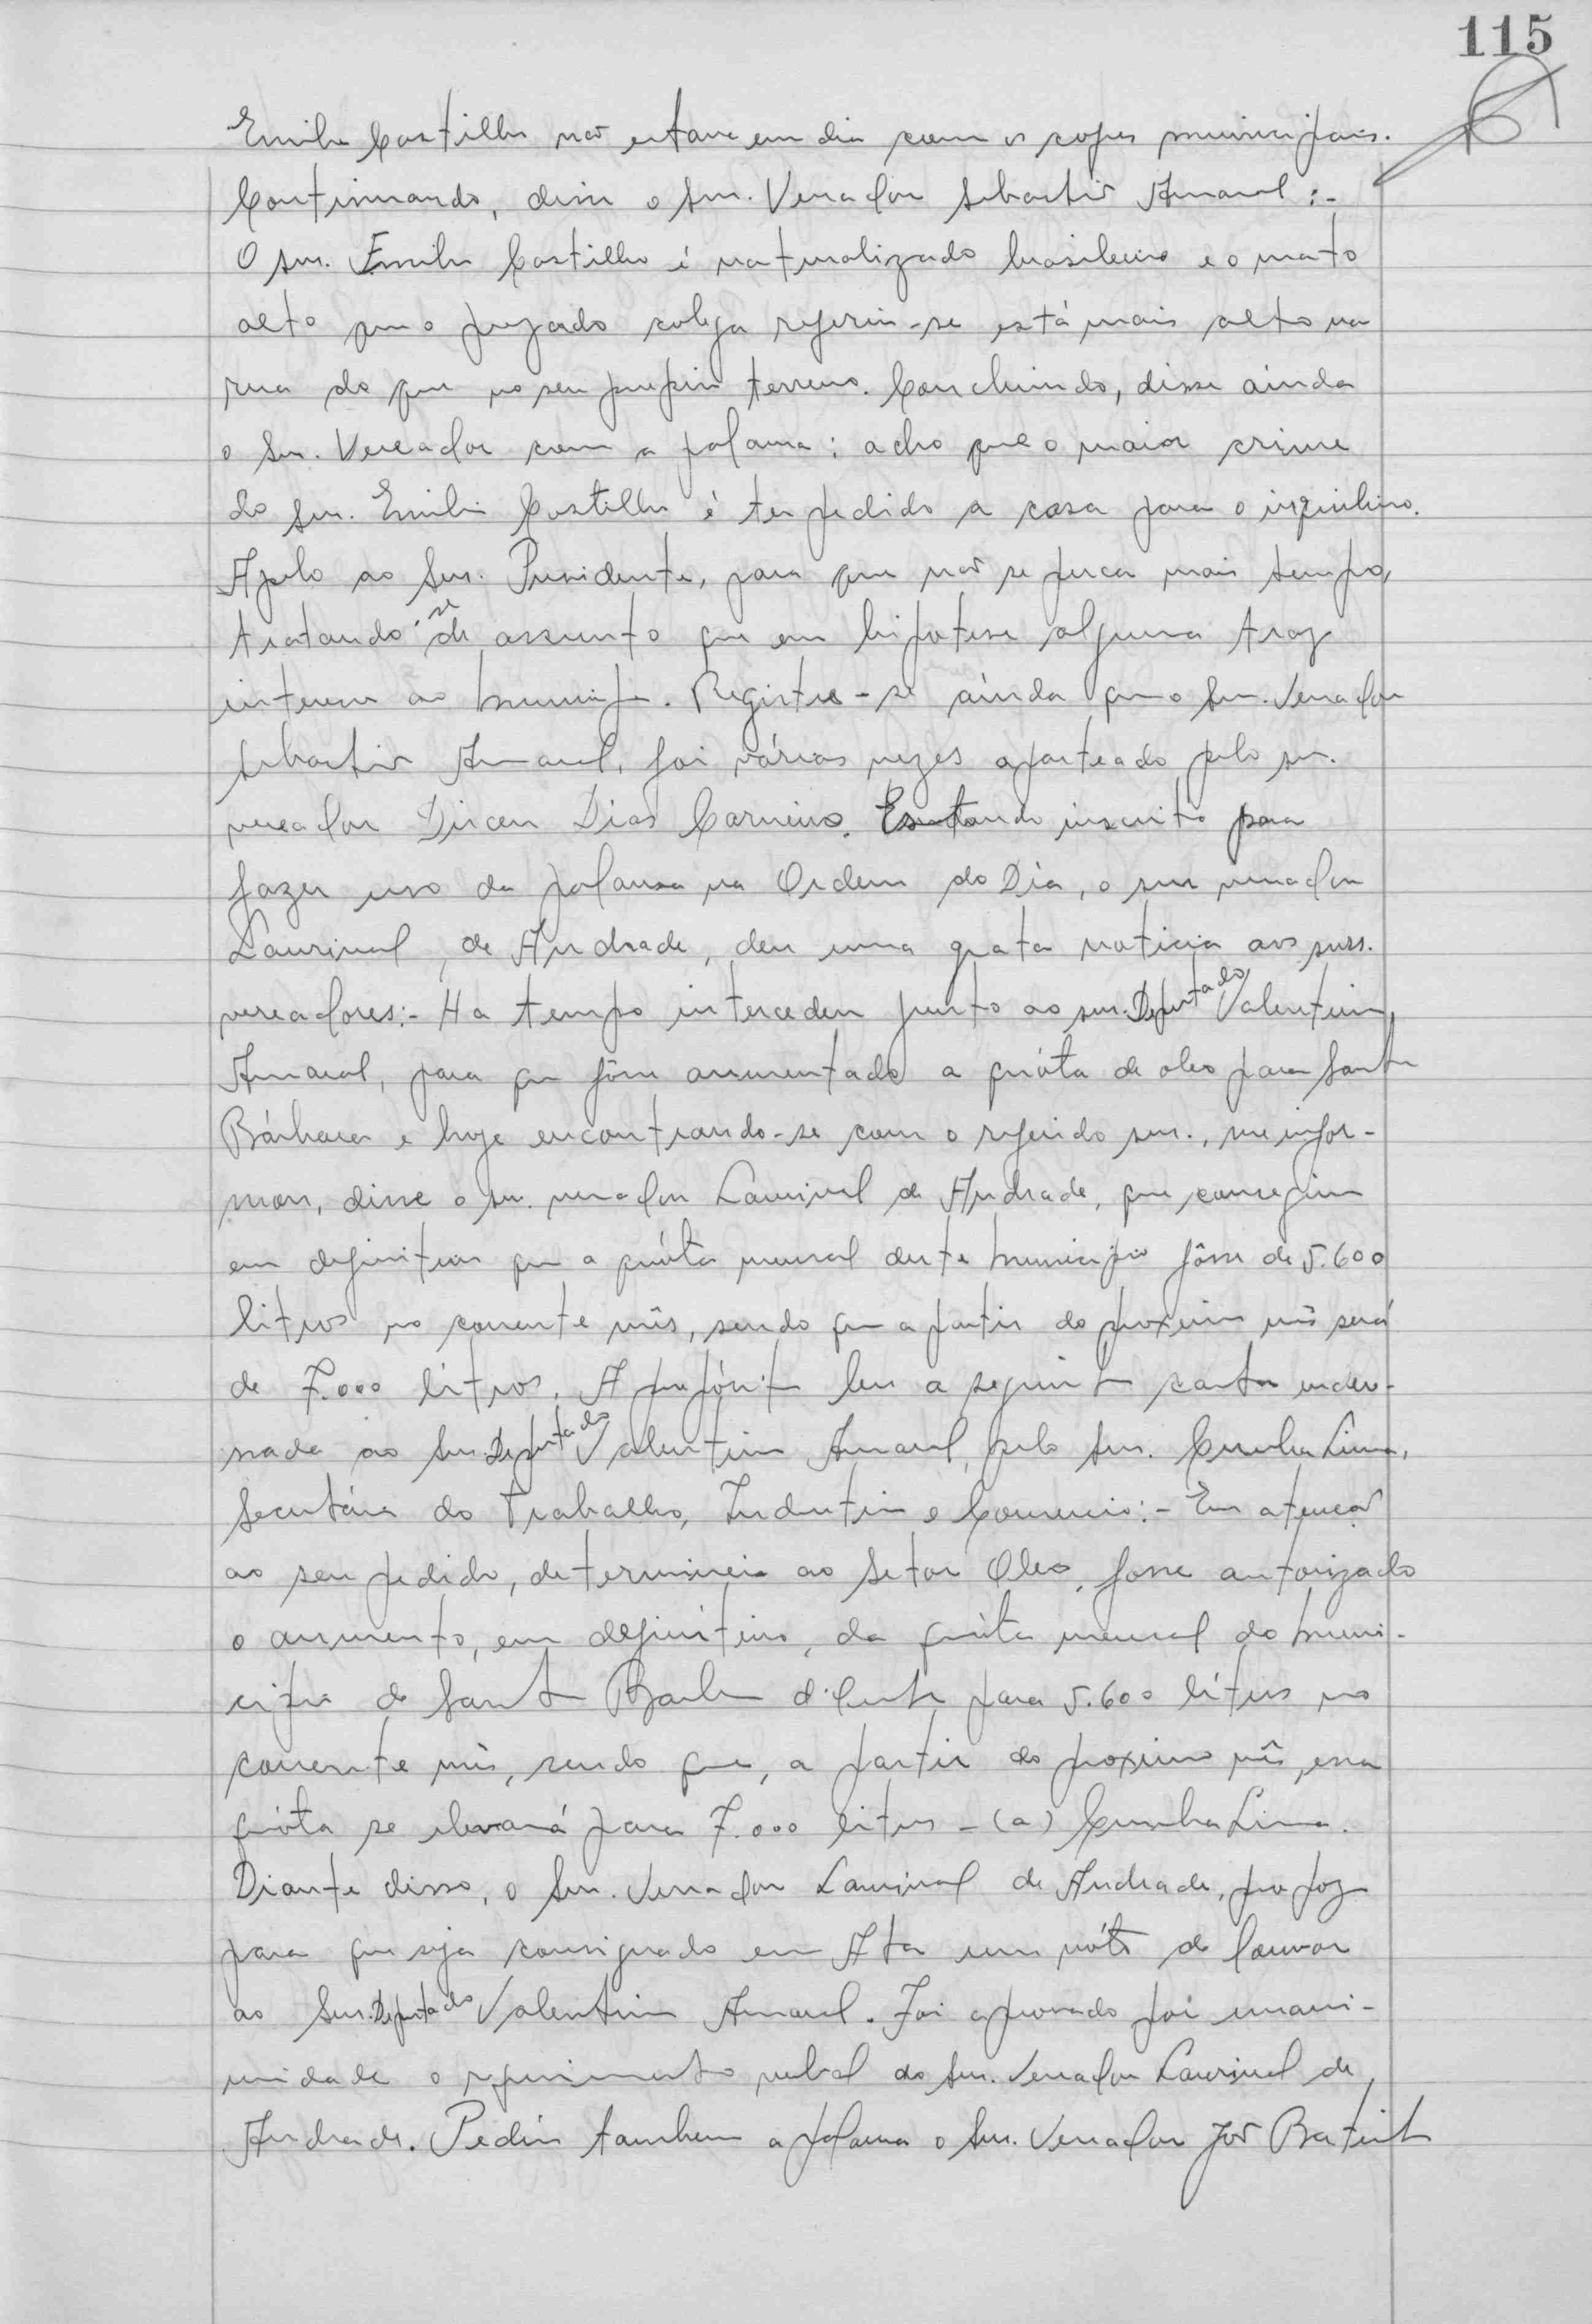 115
Emilio Castilho não estava em dia com os cofres municipais.
Continuando, disse o snr. Vereador Sebastião Amaral :-
O snr. Emilio Castilho é naturalizado brasileiro e o mato
alto que o prezado colega referiu-se está mais alto na
rua do que no seu proprio terreno. Concluindo, disse ainda
o snr. Vereador com a palavra : acho que o maior crime
do snr. Emilio Castilho é ter pedido a casa para o inquilino.
Apelo ao Snr. Presidente, para que não se perca mais tempo,
tratando-se de assunto que em hipotese alguma traz
interesse ao municipio. Registre-se ainda que o Snr. Vereador
Sebastião Amaral, foi várias vezes aparteado pelo snr.
vereador Dirceu Dias Carneiro. Estando inscrito para
fazer uso da palavra na Ordem do Dia, o snr vereador
Laurival, de Andrade, deu uma grata noticia aos snrs.
vereadores:- Ha tempo intercedeu junto ao snr. Deputado Valentim
Amaral, para que fôsse aumentado a quóta de oleo para Santa
Bárbara e hoje encontrando-se com o referido snr., me infor-
mou, disse o snr. vereador Laurival de Andrade, que conseguiu
em definitivo que a quóta mensal deste municipio fôsse de 5.600
litros no corrente mês, sendo que a partir do proximo mês será
de 7.000 litros. A propósito leu a seguinte carta ende-
sada ao Snr. Deputado Valentim Amaral, pelo Snr. Cunha Lima,
Secretário do Trabalho, Industria e Comercio:- Em atenção
ao seu pedido, determinei ao Setor Oleo, fosse autorizado
o aumento, em definitivo, da quóta mensal do muni-
cipio de Santa Barbara d'Oeste para 5.600 litros no
corrente mês, sendo que, a partir do proximo mês, essa
quóta se elevará para 7.000 litros - (a) Cunha Lima.
Diante disso, o Snr. Vereador Laurival de Andrade, propoz
para que seja consignado em Ata um vóto de louvor
ao Snr. Deputado Valentim Amaral. Foi aprovado por unani-
midade o requerimento verbal do Snr. Vereador Laurival de
Andrade. Pediu tambem a palavra o Snr. Vereador João Batista